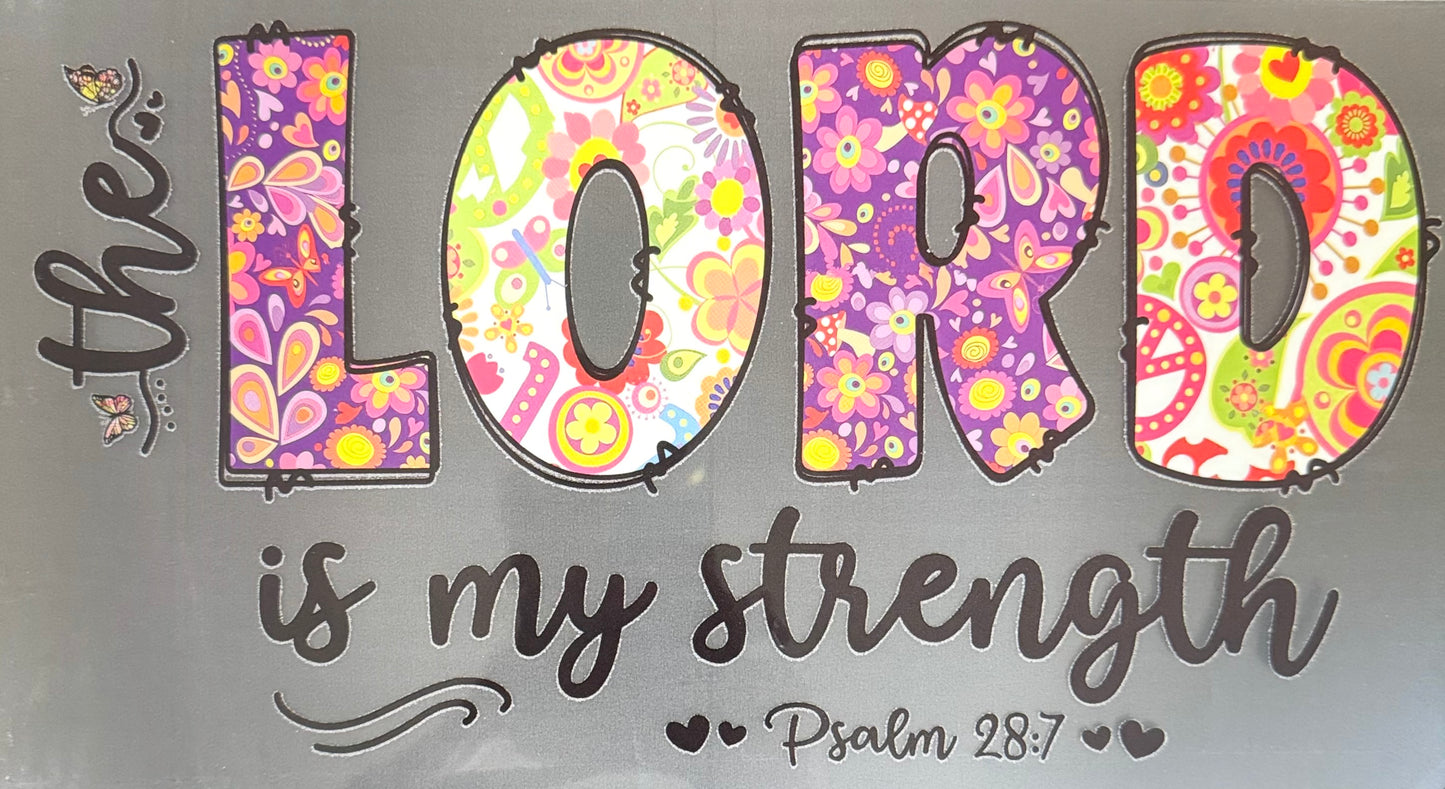 the
LORD
is my strength
Psalm 28:7